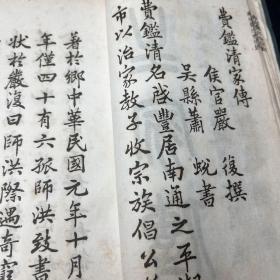 費鑑清家傳
侯官嚴復撰
吳縣蕭蛻書
費鑑清名啟豐居南通之平潮
市以治家教子收宗族倡公
著於鄉中華民國元年十月
年僅四十有六孤師洪致書
狀於嚴復曰師洪際遇奇窮